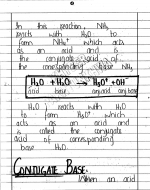 In this reaction, NH3
reacts with H2O to
form NH4+ which acts
as an acid and is
the conjugate acid of
the corresponding base NH3
H2O + H2O → H3O+ + OH-
acid base acid base
H2O reacts with H2O
to form H3O+ which
acts as an acid and
is called the conjugate
acid of corresponding
base H2O.
CONJUGATE BASE:
When an acid